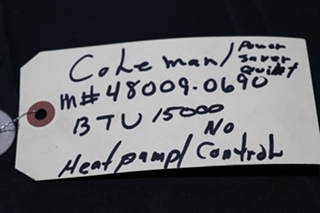 Coleman/ Power
Saver
Quiet
M# 48009-0690
BTU 15000
No
Heatpump/ Control